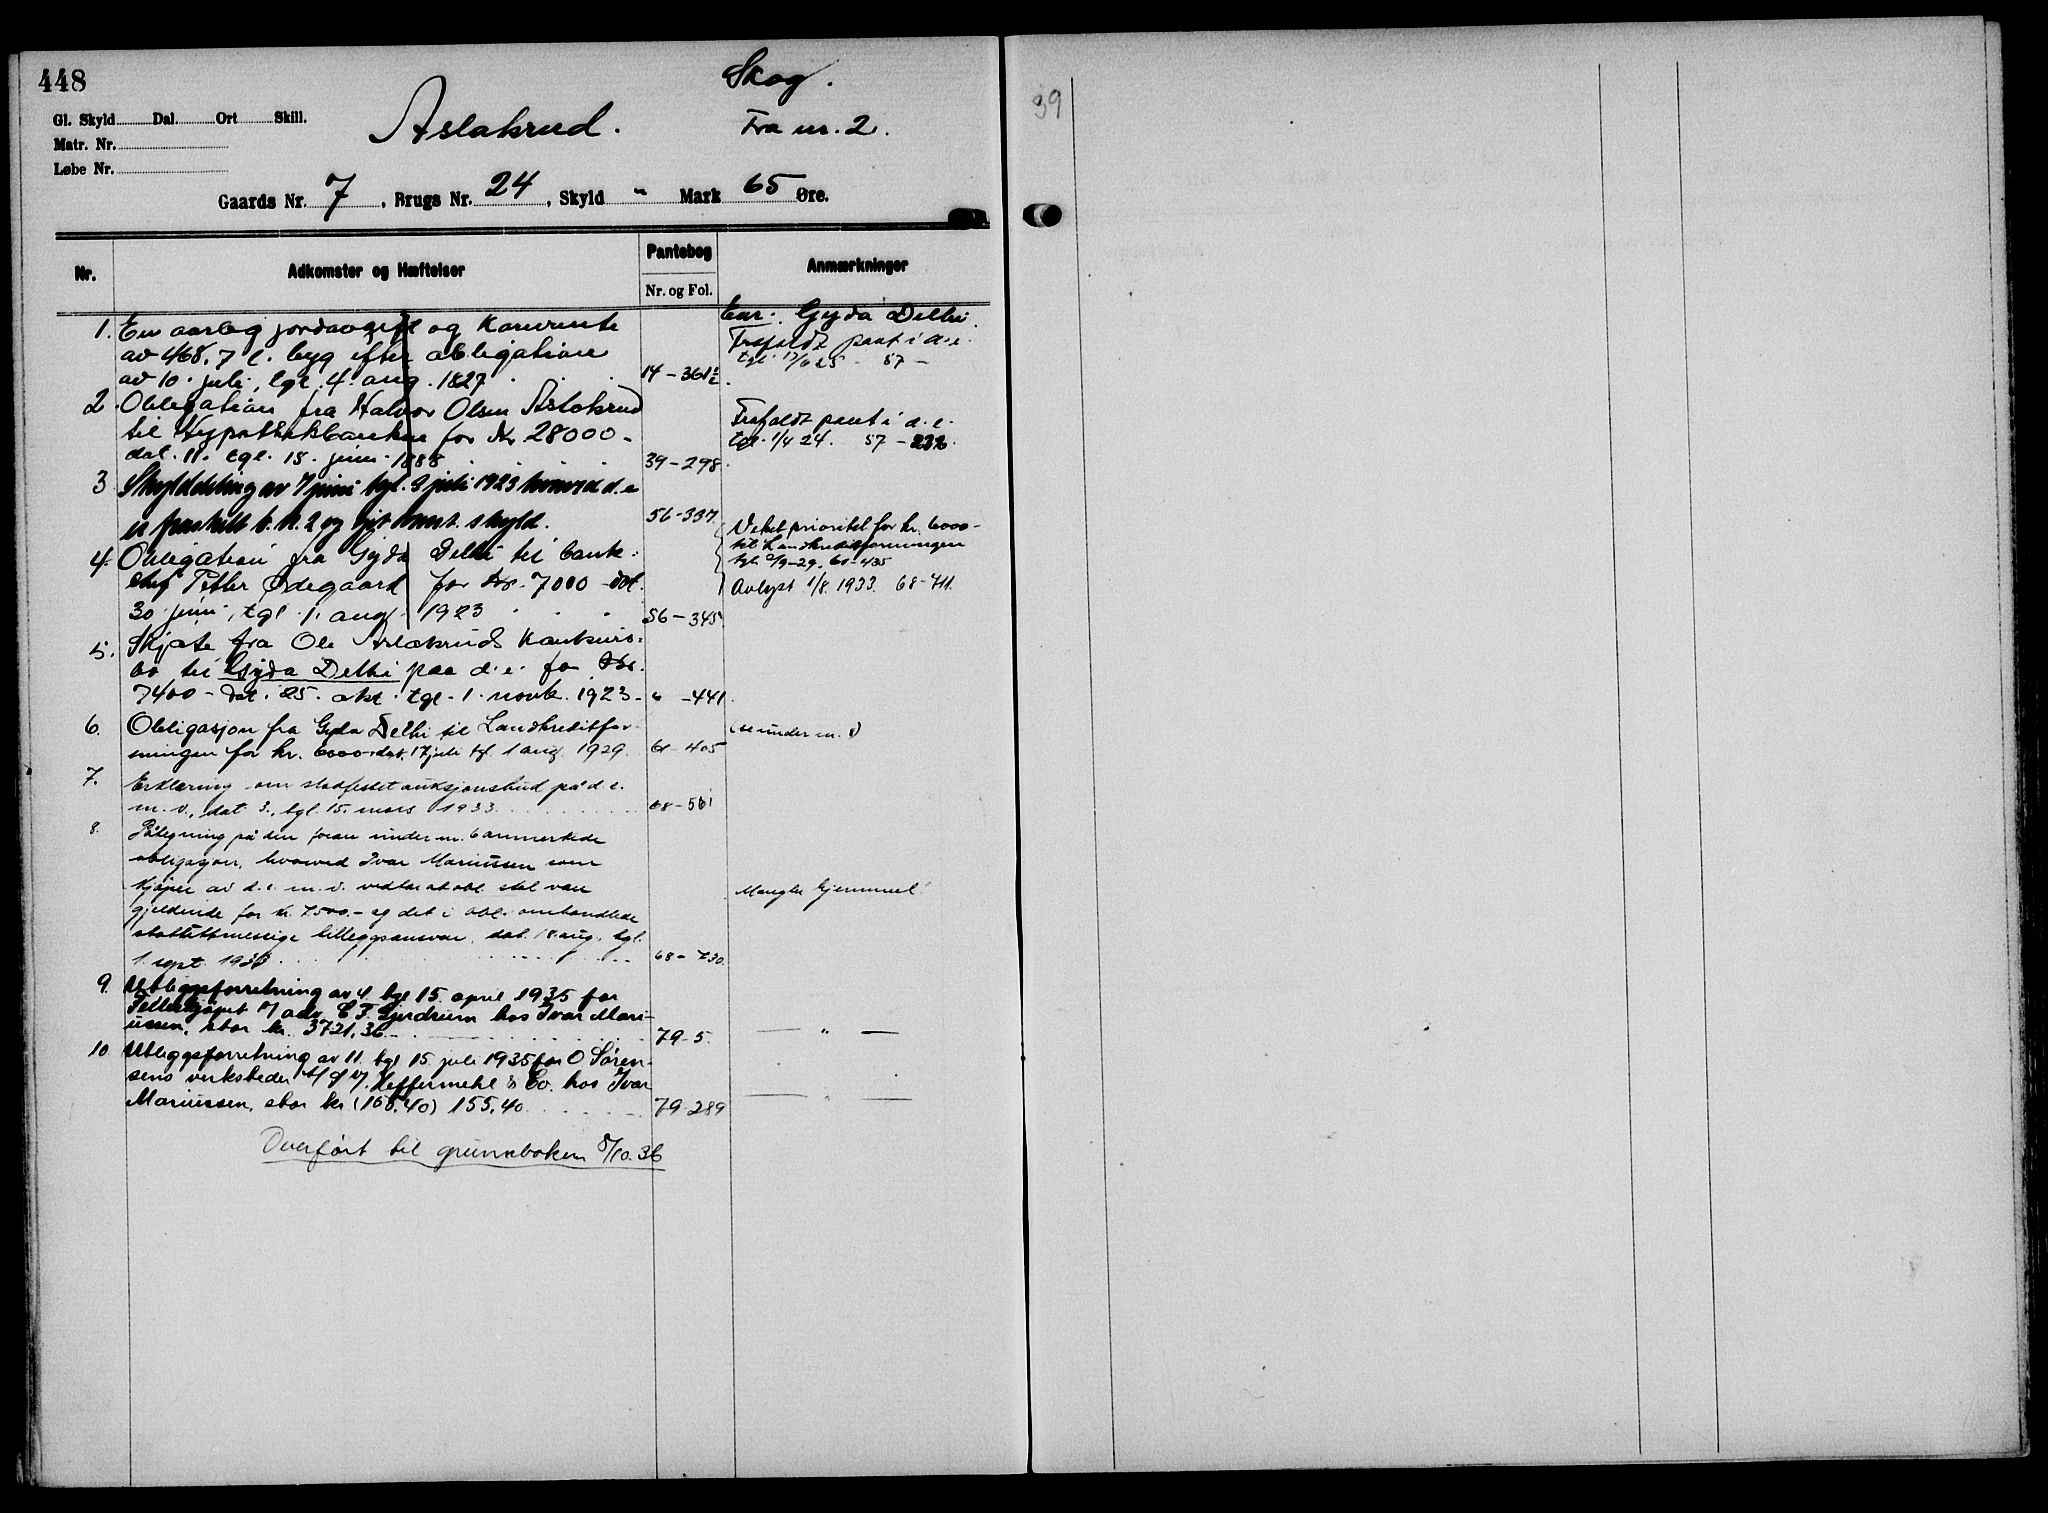 448
Skog.
Gl. Skyld Dal. Ort Skill.
Aslakrud. Fra nr. 2.
Matr. Nr.
Løbe Nr.
Gaards Nr. 7, Brugs Nr. 24, Skyld " Mark 65 Øre.
Nr. Adkomster og Hæftelser Pantebog Nr. og Fol. Anmærkninger
Eier: Gyda Delhi.
1. En aarleg jordavgift og kornrente
av 468,7 l. byg efter obligation
av 10. juli, tgl. 4. aug. 1827 14-361
Frafaldt pant i d.e.
tgl. 57 -
2. Obligation fra Halvor Olsen Aslakrud
til Hypothekbanken for Kr 28000-
dat. 11. tgl. 15. juni 1888 39-298.
Frafaldt pant i d.e.
tgl. 1/4 24. 57-232.
3 Skylddeling av 7 juni tgl. 9 juli 1923 hvorved d.e
er fraskilt b.n. 2 og git anst. skyld. 56-337.
4. Obligation fra Gyda Delhi til bank-
chef Petter Ødegaard for Kr. 7000 - dat.
30 juni, tgl. 1. aug. 1923 56-345
Veket prioritet for kr. 6000-
til Landkreditforeningen
tgl. 61-435
Avlyst 1/8. 1933. 68-711.
5. Skjøte fra Ole Aslakruds konkurs-
bo til Gyda Delhi paa d.e. for Kr.
7400 - dat. 25. okt. tgl. 1. novb. 1923 - " -441.
6. Obligasjon fra Gyda Delhi til Landkreditfor-
eningen for kr. 6000 - dat. 17 juli tgl. 1 aug. 1929. 61-405
(se under nr. 8)
7. Erklæring om stadfestet auksjonsbud på d.e.
m.v., dat 3., tgl. 15. mars 1933 68-561
8. Påtegning på den foran under nr. 6 anmerkede
obligasjon, hvorved Ivar Mariussen som
kjøper av d.e. m.v. vedtar at obl. skal være
gjeldende for kr. 7500.- og det i obl. omhandlede
statuttmessige tilleggsansvar, dat. 18. aug. tgl.
1. sept. 1933 68-730.
Mangler hjemmel.
9. Utleggsforretning av 4. tgl 15. april 1935 for
Felleskjøpet v/ adv. E F. Gjerdrum hos Ivar Mari-
ussen, stor kr. 3721,36 - 79-5. — " —
10. Utleggsforretning av 11. tgl 15. juli 1935 for O Søren-
sens verksteder A/S v/. Heffermehl & Co. hos Ivar
Mariussen, stor kr (168,40) 155,40 79-289 — " —
Overført til grunnboken 8/10.36
39